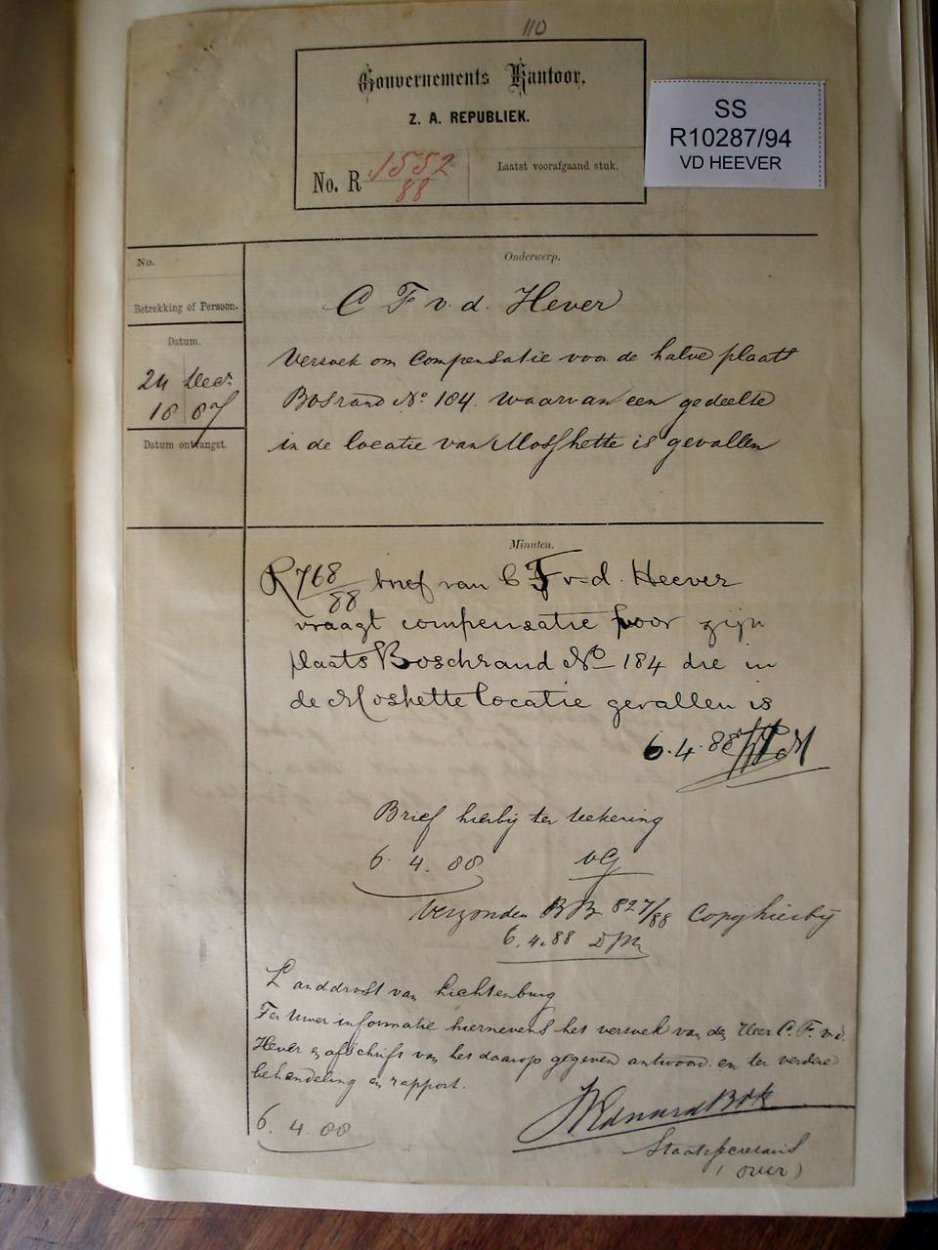 110
Gouvernements Kantoor,
Z. A. REPUBLIEK.
No. R 1552/88
Laatst voorafgaand stuk.
SS
R10287/94
VD HEEVER
No.
Betrekking of Persoon.
Datum.
24 Decr
1887
Datum ontvangst.
Onderwerp.
C F v. d. Hever
Verzoek om Compensatie voor de halve plaats
Bosrand No. 184. waarvan een gedeelte
in de locatie van Mosshette is gevallen
Minuten.
R768/88 brief van C F v. d. Heever
vraagt compensatie voor zijn
plaats Boschrand No 184 die in
de Moshette locatie gevallen is
6.4.88
Brief hierbij ter teekening
6. 4. 88
Verzonden BB 827/88 Copy hierbij
6.4.88
Landdrost van Lichtenburg
Ter Uwer informatie hiernevens het verzoek van den Heer C. F. v. d.
Hever & afschrift van het daarop gegeven antwoord en ter verdere
behandeling en rapport.
6. 4. 88
W Eduard Bok
Staatssecretaris
(over)